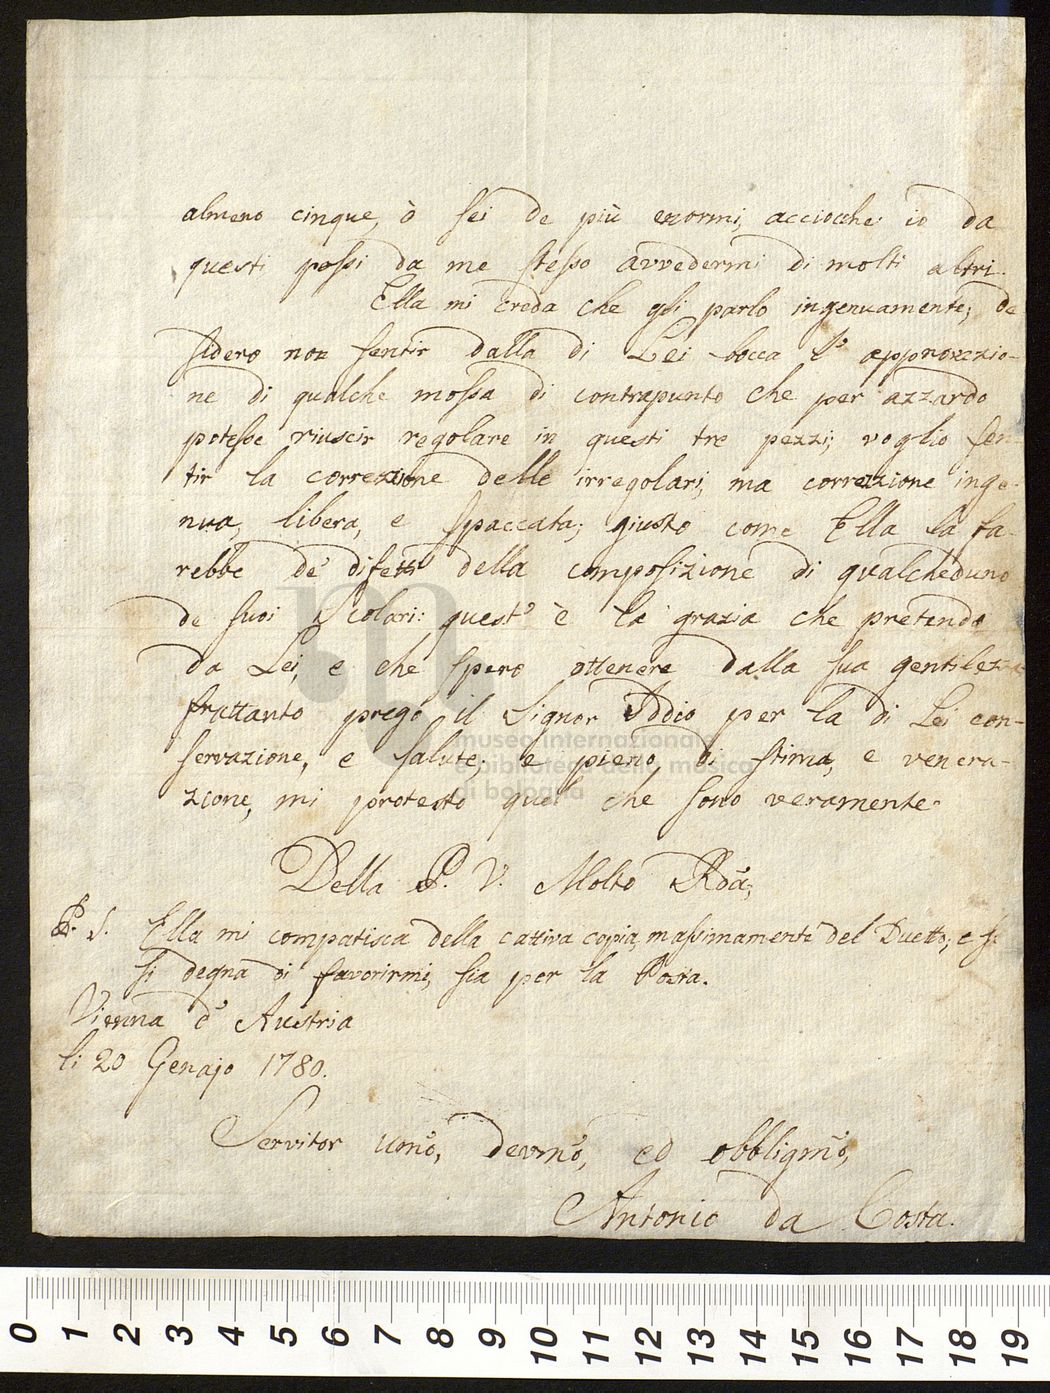 almeno cinque, ò sei de più enormi, acciocche io da
questi possi da me stesso avvedermi di molti altri.
Ella mi creda che gli parlo ingenuamente; de
sidero non sentir dalla di Lei bocca l' approvazio-
ne di qualche mossa di contrapunto che per azzardo
potesse riuscir regolare in questi tre pezzi; voglio sen-
tir la correzione delle irregolari, ma correzione inge-
nua, libera, e spaccata; giusto come Ella la fa-
rebbe de' difetti della composizione di qualcheduno
de suoi Scolari: quest' è la grazia che pretendo
da Lei, e che spero ottenere dalla sua gentilezza
frattanto prego il Signor Iddio per la di Lei con-
servazione, e salute; e pieno di stima, e venera-
zione, mi protesto quel che sono veramente.
Della P. V. Molto Rda,
P. S. Ella mi compatisca della cattiva copia, massimamente del Duetto; e se
si degna di favorirmi, sia per la Posta.
Vienna d' Austria
li 20 Genajo 1780.
Servitor umo, devmo, ed obbligmo,
Antonio da Costa.
museo internazionale
e biblioteca della musica
di bologna
0 1 2 3 4 5 6 7 8 9 10 11 12 13 14 15 16 17 18 19